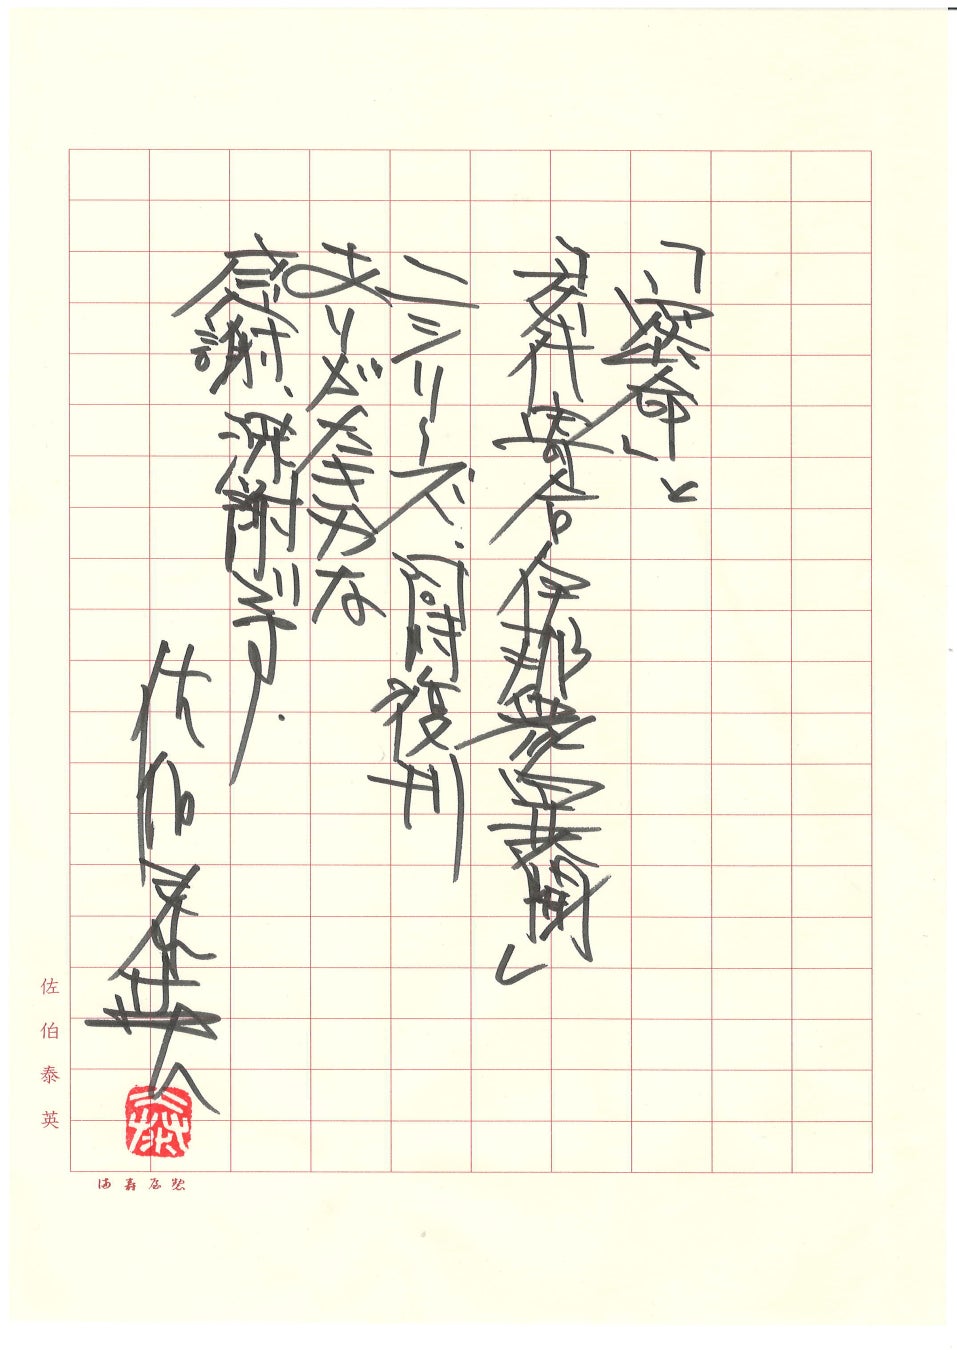 「密命」と
「交代寄合伊那衆異聞」
二シリーズ、同時復刊
ありがたきかな
感謝、
佐伯泰英
佐伯泰英